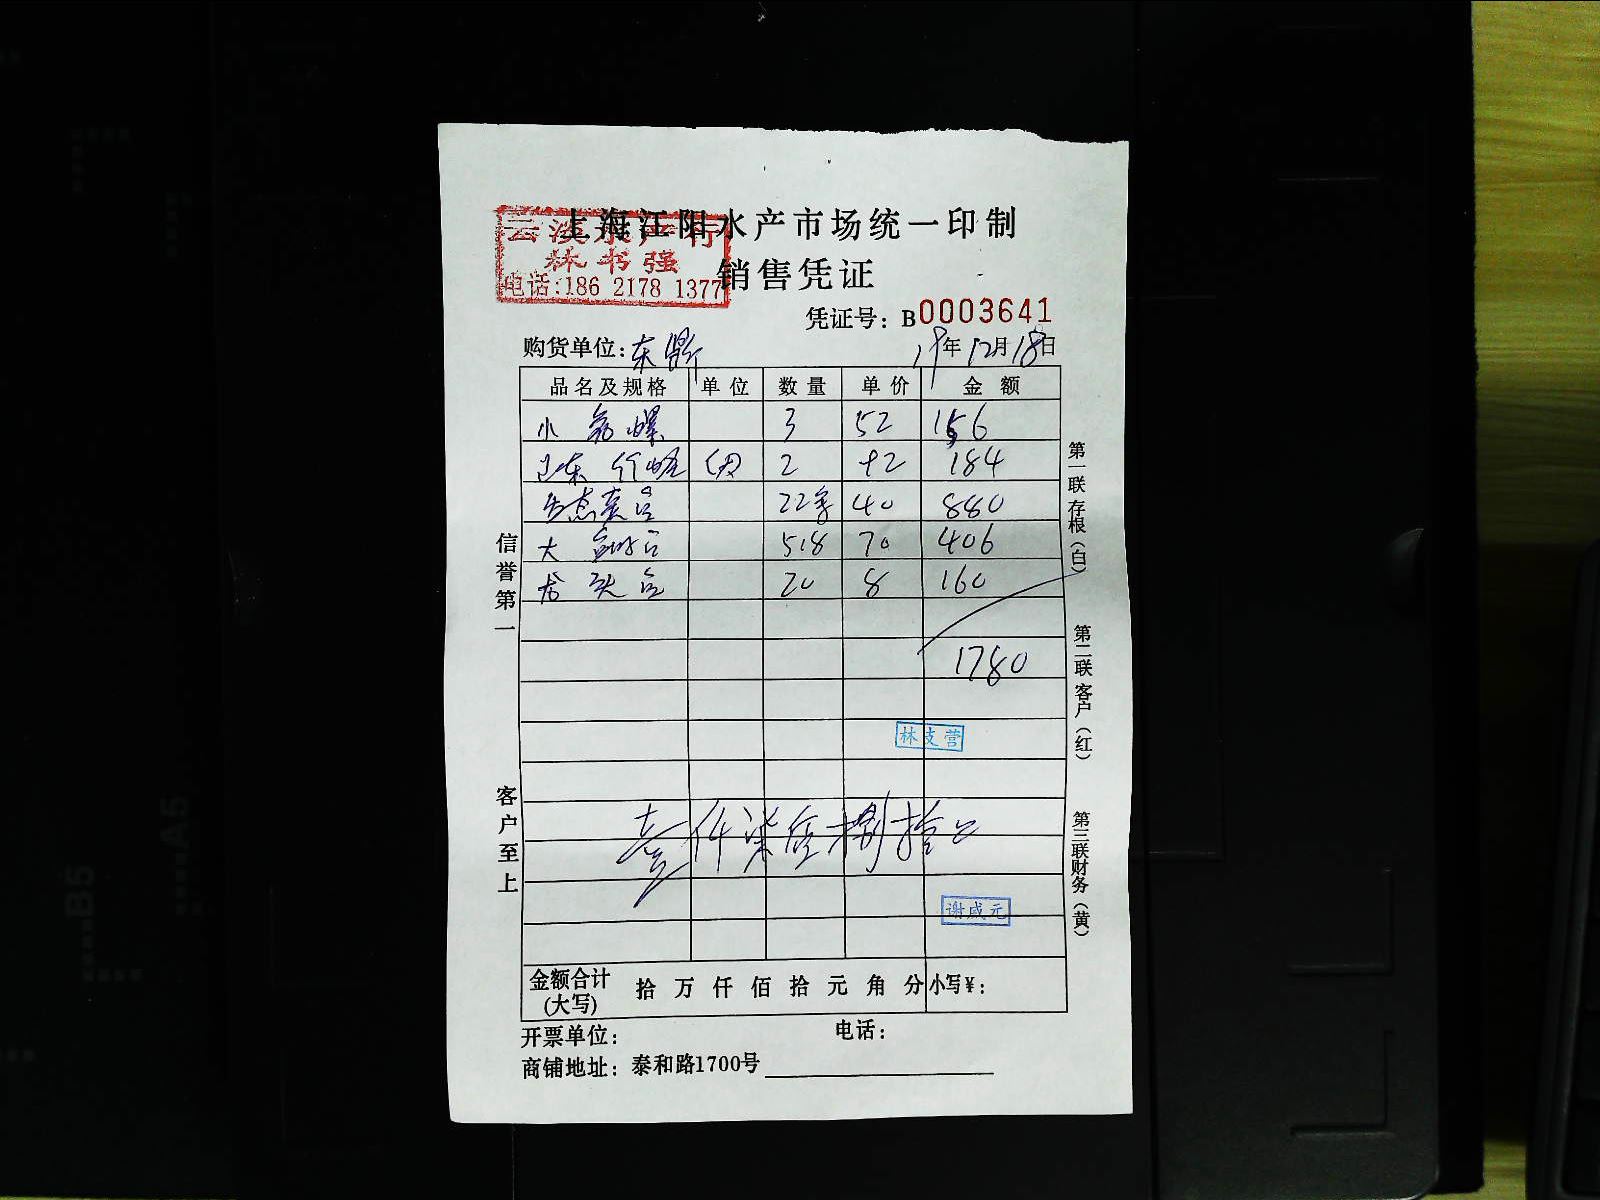 上海江阳水产市场统一印制
云淡水产行
林书强
电话:186 2178 1377
销售凭证
凭证号：B0003641
购货单位：东鼎 19年12月18日
品名及规格 单位 数量 单价 金额
小 螺 3 52 156
2 92 184
22 40 880
大 5.8 70 406
龙头 20 8 160
1780
林支营
壹仟柒佰捌拾元
谢成元
金额合计(大写) 拾 万 仟 佰 拾 元 角 分 小写¥：
开票单位： 电话：
商铺地址：泰和路1700号
信誉第一
客户至上
第一联存根(白)
第二联客户(红)
第三联财务(黄)